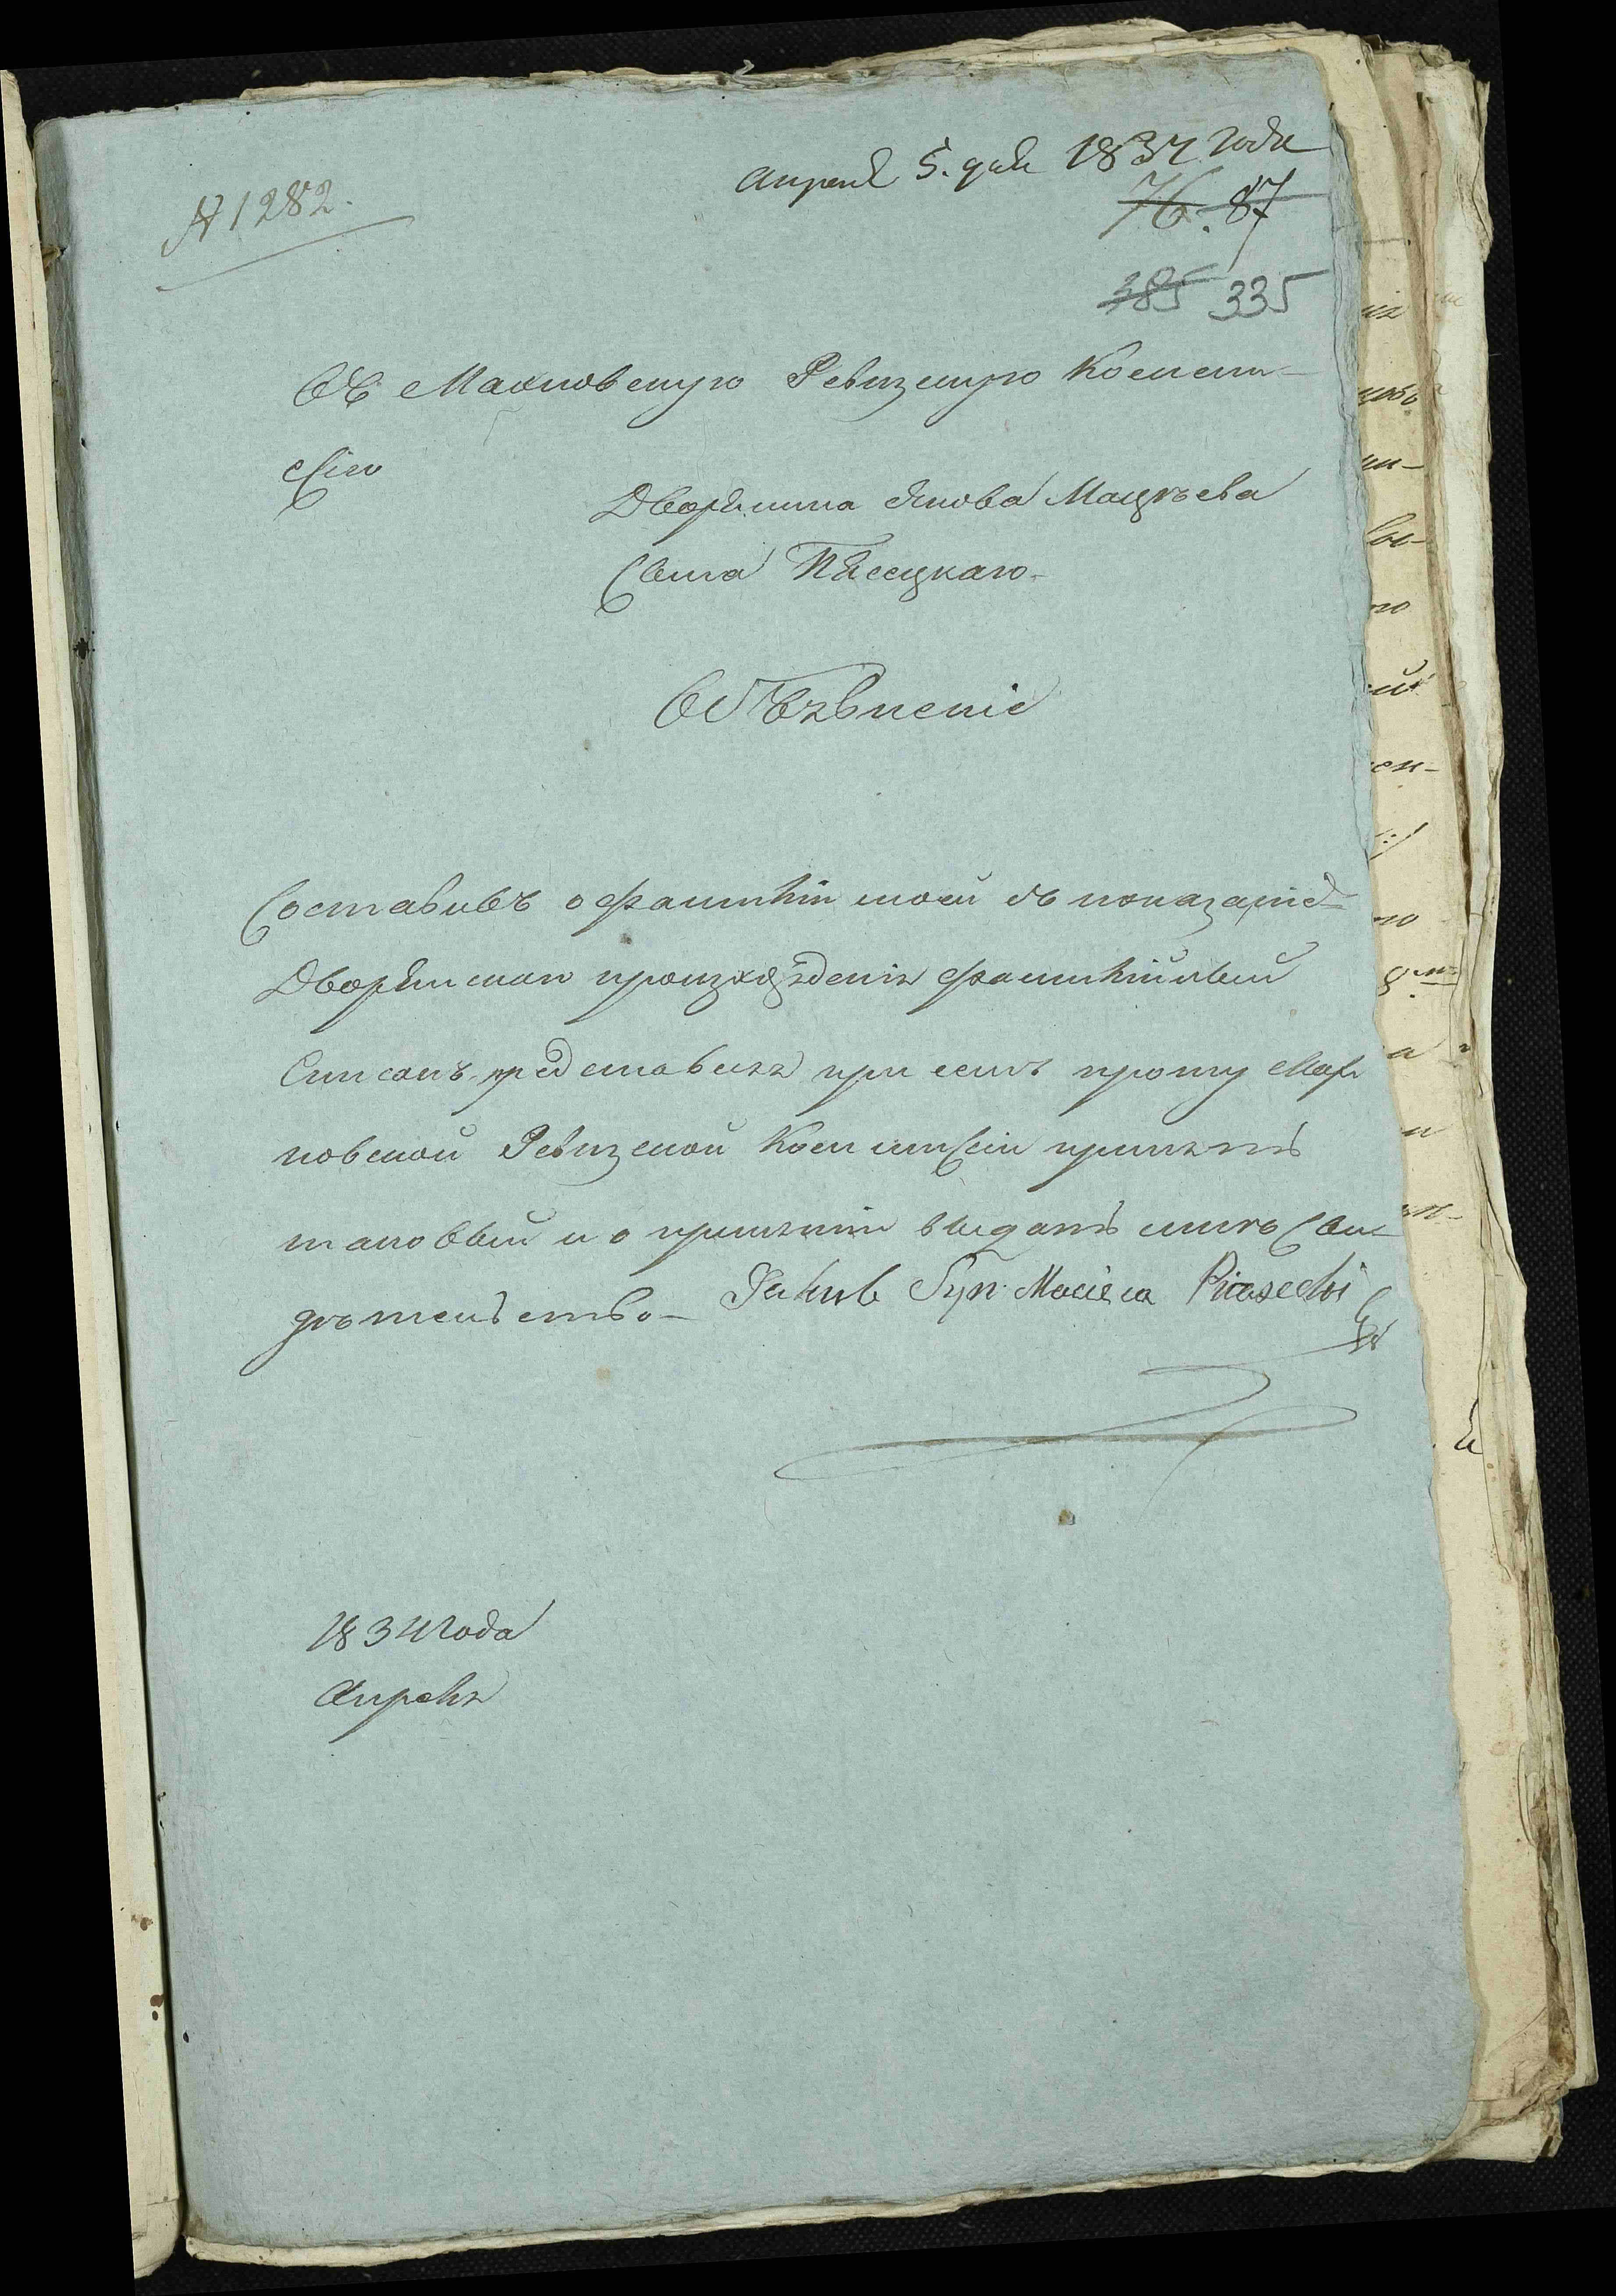 Апреля 5. дня 1834 года
№ 1282.
76. 87
385 335
Въ Махновскую Ревизскую Коммис-
сію
Дворянина Якова Мацѣева
Сына Пясецкаго
Объявленіе
Составивъ о фамиліи моей съ показаніемъ
Дворянскаго произхожденія фамилійный
Списокъ, представляя при семъ прошу Мах
новской Ревизской Коммиссіи принять
таковый и о принятіи выдать мнѣ Сви-
дѣтельство- Jakub Syn Macieia Piasecki
1834 года
Апреля